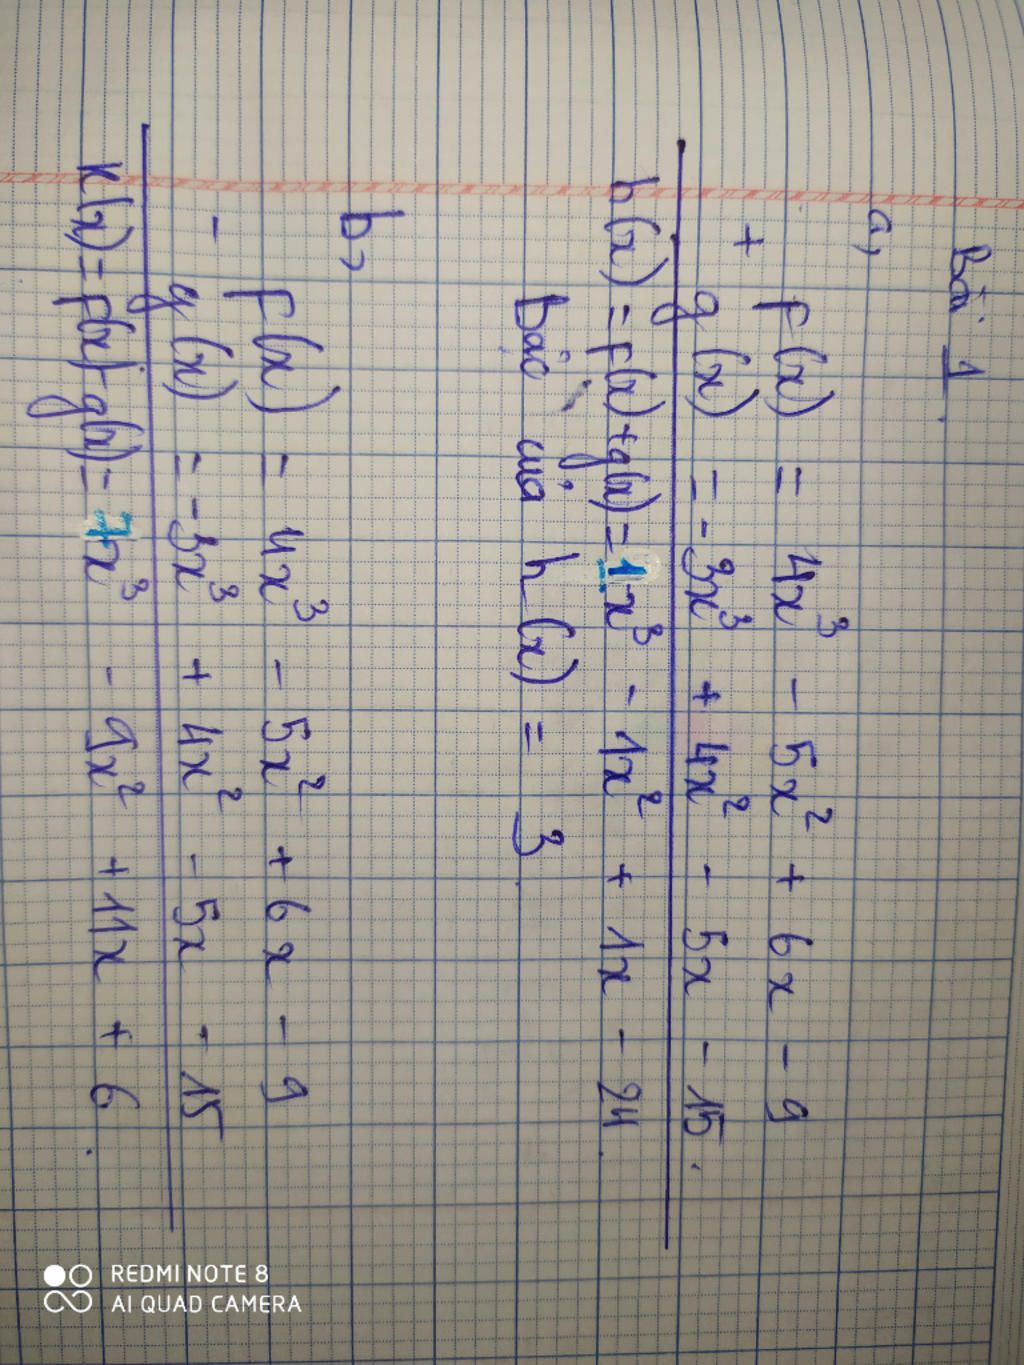 Bài 1.
a,
f(x) = 4x³ - 5x² + 6x - 9
+
g(x) = -3x³ + 4x² - 5x - 15.
h(x) = f(x)+g(x) = 1x³ - 1x² + 1x - 24.
Bậc của h(x) = 3.
b,
f(x) = 4x³ - 5x² + 6x - 9
-
g(x) = -3x³ + 4x² - 5x - 15
K(x) = f(x)-g(x) = 7x³ - 9x² + 11x + 6.
REDMI NOTE 8
AI QUAD CAMERA